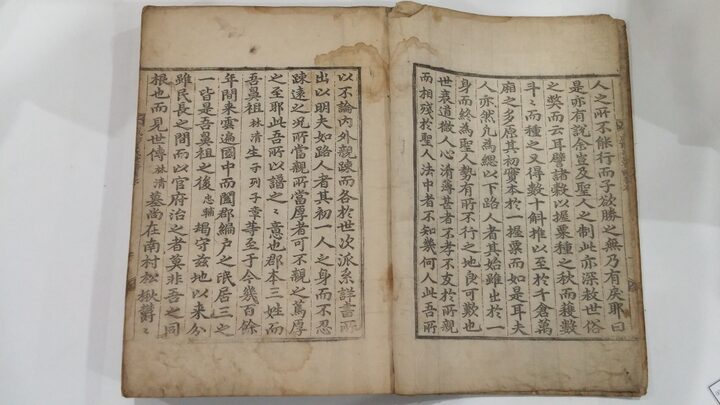 人之所不能行而子欲勝之無乃有矣耶曰
是亦有說余豈及聖人之制此亦深救世俗
之獘而云耳譬諸救以握粟種之秋而穫數
斗斗而種之又得數十斛推以至於千倉萬
廂之多原其初實本於一握粟而如是耳夫
人亦然凢為緦以下路人者其始雖出於一
身而終為聖人勢有所不行之地良可歎也
世衰道微人心淆薄甚者不孝不友於所親
而相殘於聖人法中者不知幾何人此吾所
以不論內外親踈而各於世次派系詳書所
出以明夫如路人者其初一人之身而不忍
踈遠之况所當親所當厚者可不親之篤厚
之至耶此吾所以譜之之意也郡本三姓而
吾鼻祖林清生子列子章等至于今幾百餘
年間来雲遍國中而闔郡編户之氓居三之
一皆是吾鼻祖之後忠輔謁守玆地以来分
雖民長之間而以官府治之者莫非吾之同
根也而見世傳林清墓尚在南村松楸欝欝